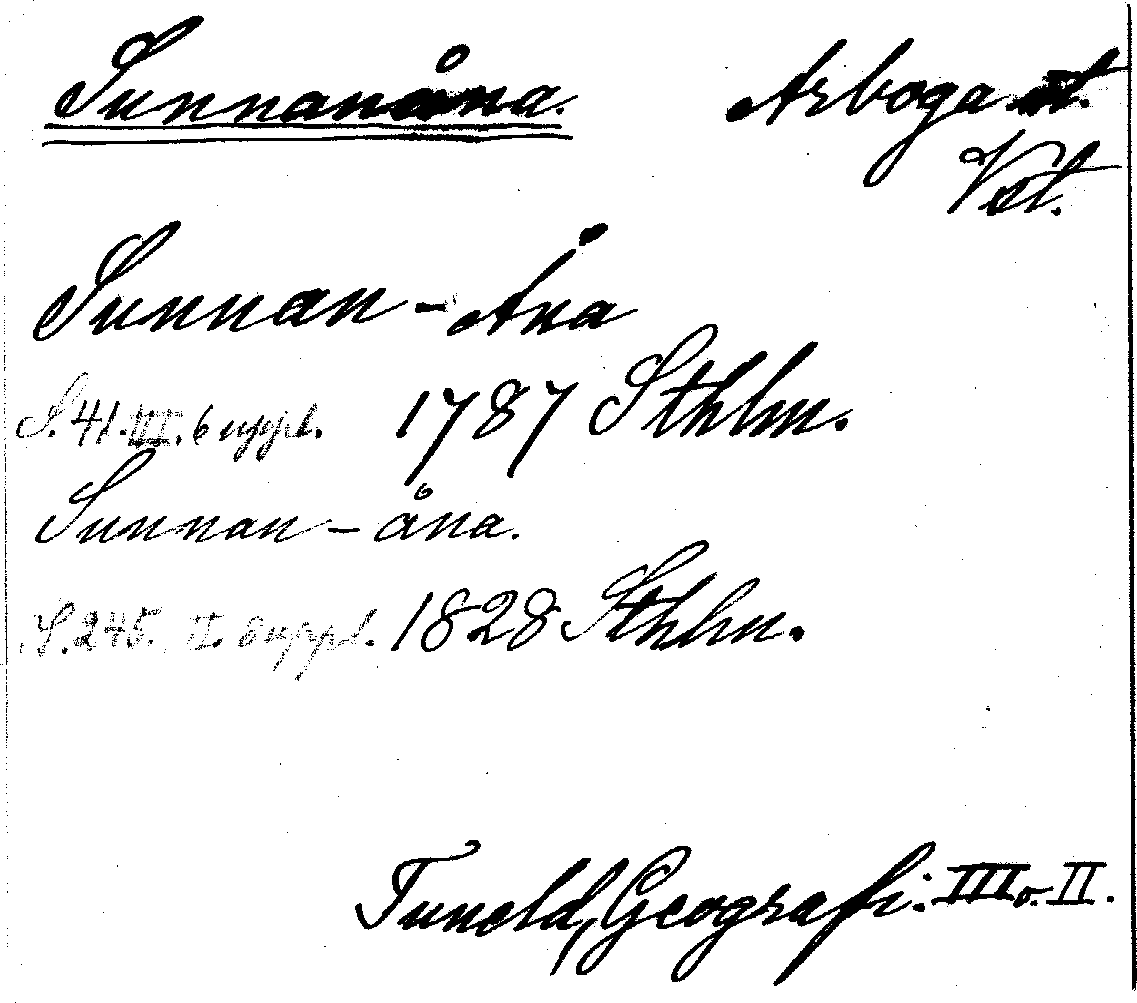 Sunnanåna. Arboga st.
Vst.
Sunnan - Åna
S. 41. III. 6 uppl. 1787 Sthlm.
Sunnan - åna.
S. 245. II. 8 uppl. 1828 Sthlm.
Tuneld, Geografi. III o. II.